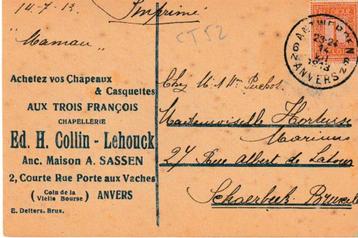 14-7-13. Imprimé
"Maman"
CT52
ANTWERPEN 6
23-24
14
1913
ANVERS 6
Achetez vos Chapeaux
& Casquettes
AUX TROIS FRANÇOIS
CHAPELLERIE
Ed. H. Collin - Lehouck
Anc. Maison A. SASSEN
2, Courte Rue Porte aux Vaches
(Coin de la Vieille Bourse) ANVERS
E. Delters. Brux.
Chez M. & Mme
Mademoiselle Hortense
27 Rue Albert de Latour
Schaerbeek